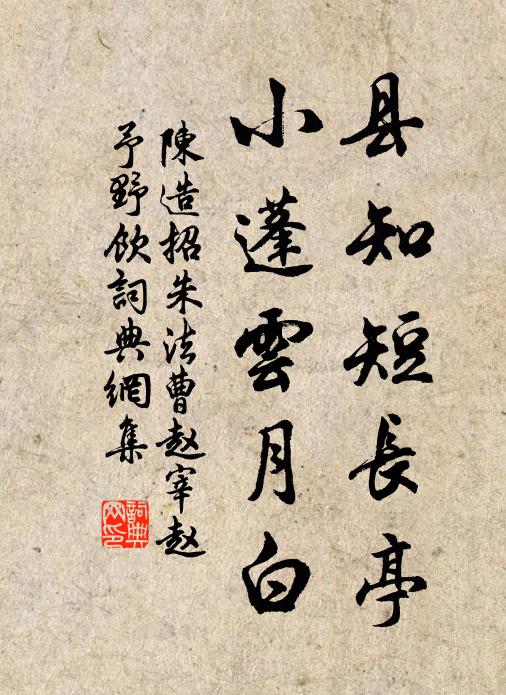 县知短長亭
小蓬雲月白
陳造招朱法曹赵宰赵
予野飲詞典網集
詞典网印